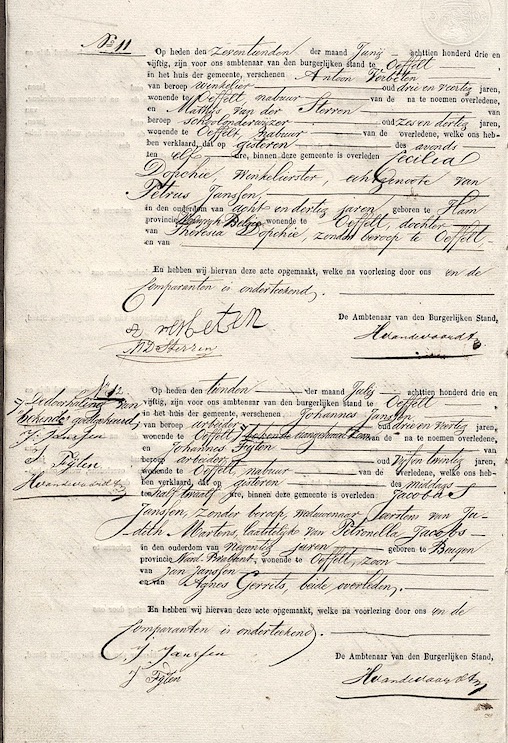 No 11
Op heden den zeventienden der maand Junij achttien honderd drie en
vijftig, zijn voor ons ambtenaar van den burgerlijken stand te Oeffelt
in het huis der gemeente, verschenen Antoon Verbeten
van beroep winkelier oud drie en veertig jaren,
wonende te Oeffelt, nabuur van de na te noemen overledene,
en Mathijs van der Sterren
beroep schoolonderwijzer oud zes en dertig jaren,
wonende te Oeffelt, nabuur van de overledene, welke ons heb-
ben verklaard, dat op gisteren des avonds
ten elf ure, binnen deze gemeente is overleden Cecilia
Dopchie, winkelierster, echtgenoote van
Petrus Janssen,
in den ouderdom van acht en dertig jaren geboren te Ham
provincie België wonende te Oeffelt, dochter
van Theresia Dopchie, zonder beroep te Oeffelt
en van
En hebben wij hiervan deze acte opgemaakt, welke na voorlezing door ons en de
Comparanten is onderteekend.
De Ambtenaar van den Burgerlijken Stand,
A verbeten
MVD Sterren
Hvandevaardt
No
Op heden den tienden der maand Julij achttien honderd drie en
vijftig, zijn voor ons ambtenaar van den burgerlijken stand te Oeffelt
in het huis der gemeente, verschenen Johannes Janssen
van beroep arbeider oud drie en veertig jaren,
wonende te Oeffelt, van de na te noemen overledene,
en Johannes Fijlen
beroep arbeider oud vijf en twintig jaren,
wonende te Oeffelt nabuur van de overledene, welke ons heb-
ben verklaard, dat op gisteren des middags
ten half twaalf ure, binnen deze gemeente is overleden Jacobus
Janssen, zonder beroep, weduwenaar eerstens van Ju-
dith Martens, laatstelijk van Petronella Jacobs
in den ouderdom van Negentig jaren geboren te Beugen
provincie Noord Braband, wonende te Oeffelt, zoon
van Jan Janssen
en van Agnes Gerrits, beide overleden.
En hebben wij hiervan deze acte opgemaakt, welke na voorlezing door ons en de
Comparanten is onderteekend.
De Ambtenaar van den Burgerlijken Stand,
J. Janssen
J Fijlen
Hvandevaardt
De doorhaling van
bekende goedgekeurd
J. Janssen
J. Fijlen
Hvandevaardt